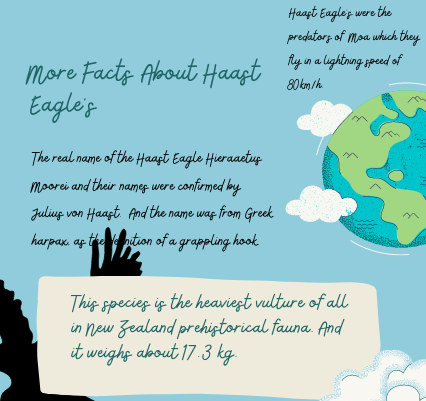 Haast Eagle's were the
predators of Moa which they
fly in a lightning speed of
80km/h.
More Facts About Haast
Eagle's
The real name of the Haast Eagle Hieraaetus
Moorei and their names were confirmed by
Julius von Haast. And the name was from Greek
harpax, as the definition of a grappling hook.
This species is the heaviest vulture of all
in New Zealand prehistorical fauna. And
it weighs about 17.3 kg.